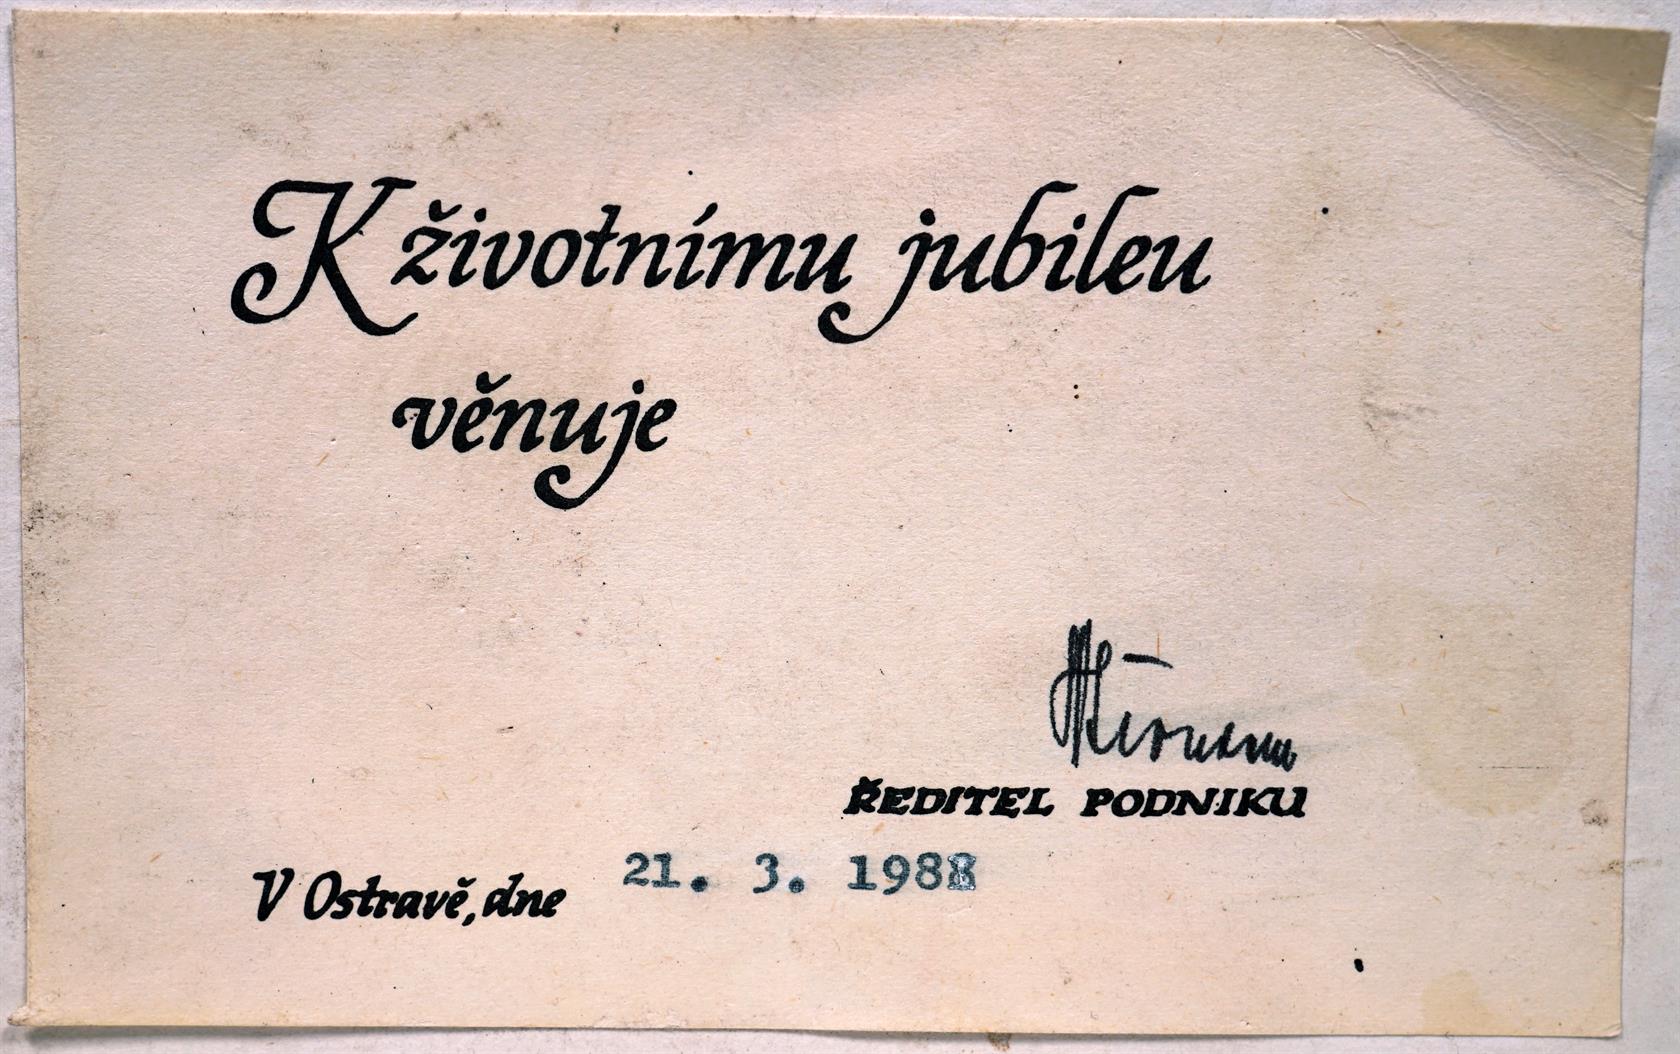 K životnímu jubileu
věnuje
ŘEDITEL PODNIKU
V Ostravě, dne 21. 3. 1988